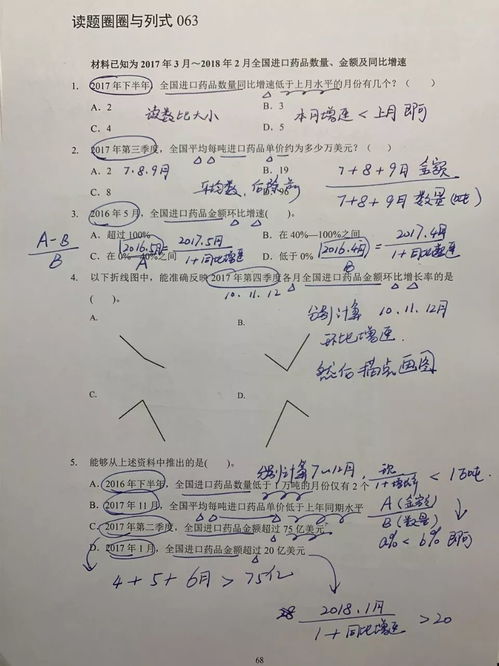 读题圈圈与列式 063
材料已知为 2017 年 3 月～2018 年 2 月全国进口药品数量、金额及同比增速
1. 2017 年下半年，全国进口药品数量同比增速低于上月水平的月份有几个？（ ）
A. 2 B. 3
读数比大小 本月增速 < 上月 即可
C. 4 D. 5
2. 2017 年第三季度，全国平均每吨进口药品单价约为多少万美元？（ ）
A. 2 7.8.9月 B. 19
7+8+9月 金额
C. 8 平均数，后除前 96
7+8+9月 数量(吨)
3. 2016 年 5 月，全国进口药品金额环比增速( )。
A. 超过 100% B. 在 40%—100%之间
A-B
B
2016.5月 = 2017.5月
1+同比增速
A
2016.4月 = 2017.4月
1+同比增速
B
C. 在 0%—40%之间 D. 低于 0%
4. 以下折线图中，能准确反映 2017 年第四季度各月全国进口药品金额环比增长率的是
( )。 10. 11. 12
A. B.
分别计算 10. 11. 12月
环比增速.
然后描点画图
C. D.
5. 能够从上述资料中推出的是( )。
分别计算7~12月.
现
1+增长率
< 1万吨
A. 2016 年下半年，全国进口药品数量低于 1 万吨的月份仅有 2 个
B. 2017 年 11 月，全国进口药品平均每吨单价低于上年同期水平
A(金额)
B(数量)
C. 2017 年第二季度，全国进口药品金额超过 75 亿美元
a% < b% 即可
D. 2017 年 1 月，全国进口药品金额超过 20 亿美元
4+5+6月 > 75亿
2018.1月
1+同比增速
> 20
68